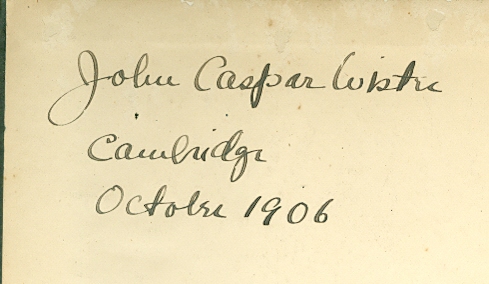 John Caspar Wister
Cambridge
October 1906